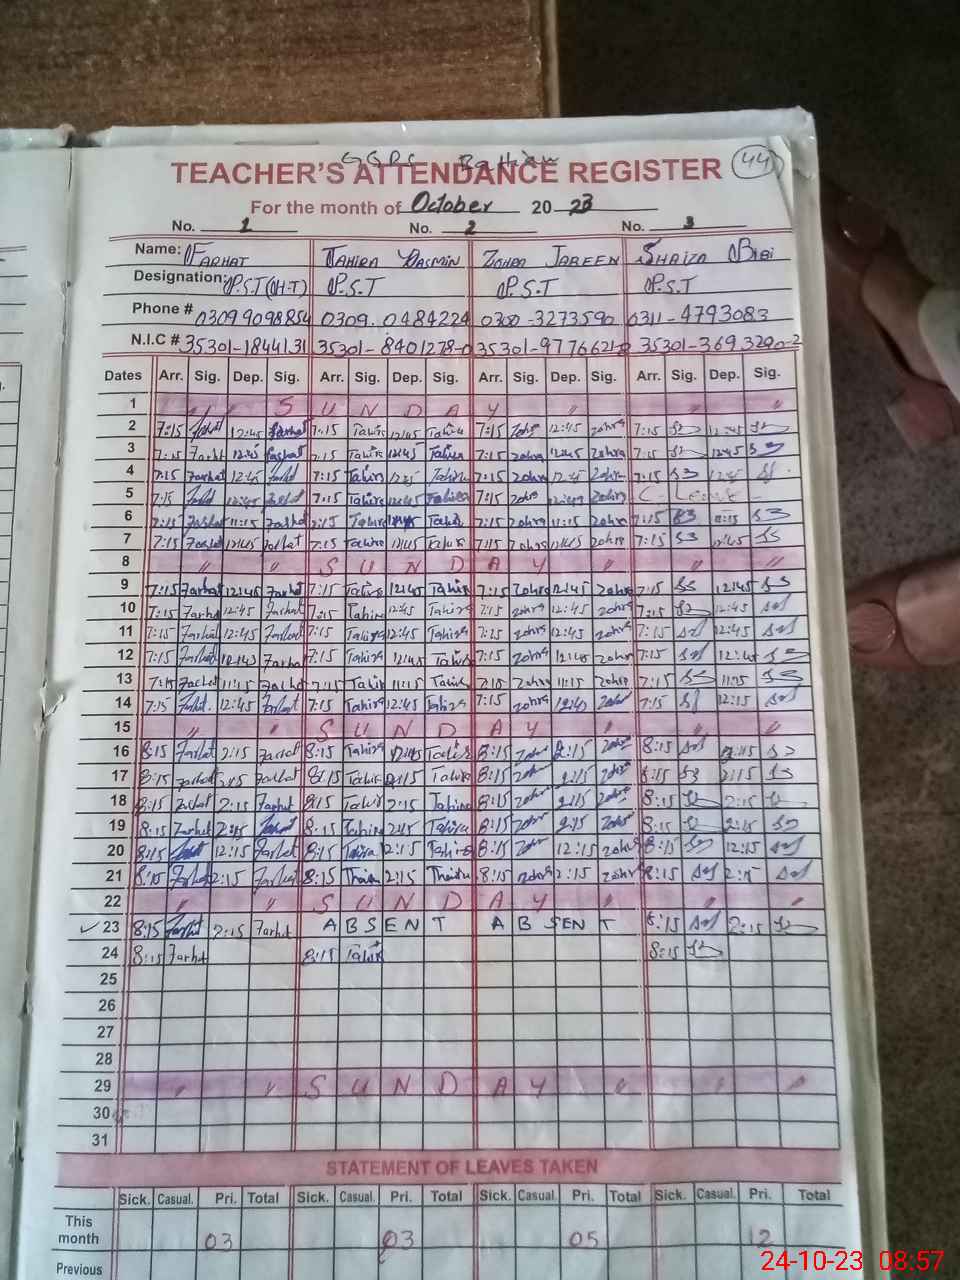 GGPS
TEACHER'S ATTENDANCE REGISTER 44
For the month of October 20 23
No. 1 No. 2 No. 3
Name: FARHAT TAHIRA YASMIN ZOHRA JABEEN SHAIZA BIBI
Designation: P.S.T (H.T) P.S.T P.S.T P.S.T
Phone # 03099098854 0309. 0484224 0300-3273590 0311-4793083
N.I.C # 35301-1844131 35301-8401278-0 35301-9776621-8 35301-3693290-2
Dates Arr. Sig. Dep. Sig. Arr. Sig. Dep. Sig. Arr. Sig. Dep. Sig. Arr. Sig. Dep. Sig.
1 " " S U N D A Y " " "
2 7:15 Farhat 12:45 Farhat 7:15 Tahira 12:45 Tahira 7:15 Zohra 12:45 Zohra 7:15 12:45
3 7:15 Farhat 12:45 Farhat 7:15 Tahira 12:45 Tahira 7:15 Zohra 12:45 Zohra 7:15 12:45
4 7:15 Farhat 12:45 Farhat 7:15 Tahira 12:45 Tahira 7:15 Zohra 12:45 Zohra 7:15 12:45
5 7:15 Farhat 12:45 Farhat 7:15 Tahira 12:45 Tahira 7:15 Zohra 12:45 Zohra C-Leave
6 7:15 Farhat 11:15 Farhat 7:15 Tahira Tahira 7:15 Zohra 11:15 Zohra 7:15 11:15
7 7:15 Farhat 12:45 Farhat 7:15 Tahira 12:45 Tahira 7:15 Zohra 12:45 Zohra 7:15 12:45
8 " " S U N D A Y " " "
9 7:15 Farhat 12:45 Farhat 7:15 Tahira 12:45 Tahira 7:15 Zohra 12:45 Zohra 7:15 12:45
10 7:15 Farhat 12:45 Farhat 7:15 Tahira 12:45 Tahira 7:15 Zohra 12:45 Zohra 7:15 12:45
11 7:15 Farhat 12:45 Farhat 7:15 Tahira 12:45 Tahira 7:15 Zohra 12:45 Zohra 7:15 12:45
12 7:15 Farhat 12:45 Farhat 7:15 Tahira 12:45 Tahira 7:15 Zohra 12:45 Zohra 7:15 12:45
13 7:15 Farhat 11:15 Farhat 7:15 Tahira 11:15 Tahira 7:15 Zohra 11:15 Zohra 7:15 11:15
14 7:15 Farhat 12:45 Farhat 7:15 Tahira 12:45 Tahira 7:15 Zohra 12:45 Zohra 7:15 12:45
15 " " S U N D A Y " " "
16 8:15 Farhat 2:15 Farhat 8:15 Tahira Tahira 8:15 Zohra 2:15 Zohra 8:15 2:15
17 8:15 Farhat 2:15 Farhat 8:15 Tahira 2:15 Tahira 8:15 Zohra 2:15 Zohra 8:15 2:15
18 8:15 Farhat 2:15 Farhat 8:15 Tahira 2:15 Tahira 8:15 Zohra 2:15 Zohra 8:15 2:15
19 8:15 Farhat 2:15 Farhat 8:15 Tahira 2:15 Tahira 8:15 Zohra 2:15 Zohra 8:15 2:15
20 8:15 Farhat 12:15 Farhat 8:15 Tahira 12:15 Tahira 8:15 Zohra 12:15 Zohra 8:15 12:15
21 8:15 Farhat 2:15 Farhat 8:15 Tahira 2:15 Tahira 8:15 Zohra 2:15 Zohra 8:15 2:15
22 " " S U N D A Y " " "
23 8:15 Farhat 2:15 Farhat A B S E N T A B S E N T 8:15 2:15
24 8:15 Farhat 8:15 Tahira 8:15
25
26
27
28
29 " " S U N D A Y " " "
30
31
STATEMENT OF LEAVES TAKEN
Sick. Casual. Pri. Total Sick. Casual. Pri. Total Sick. Casual. Pri. Total Sick. Casual. Pri. Total
This month 03 03 05 12
Previous
24-10-23 08:57